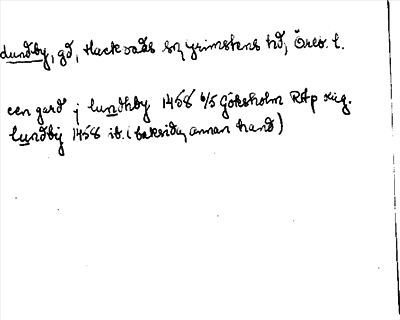 Lundby, gd, Hackvads sn, Grimstens hd, Örebro l.
een gard j lundhby 1458 6/5 Göksholm RAp orig.
lundby 1458 ib. (baksidan, annan hand)